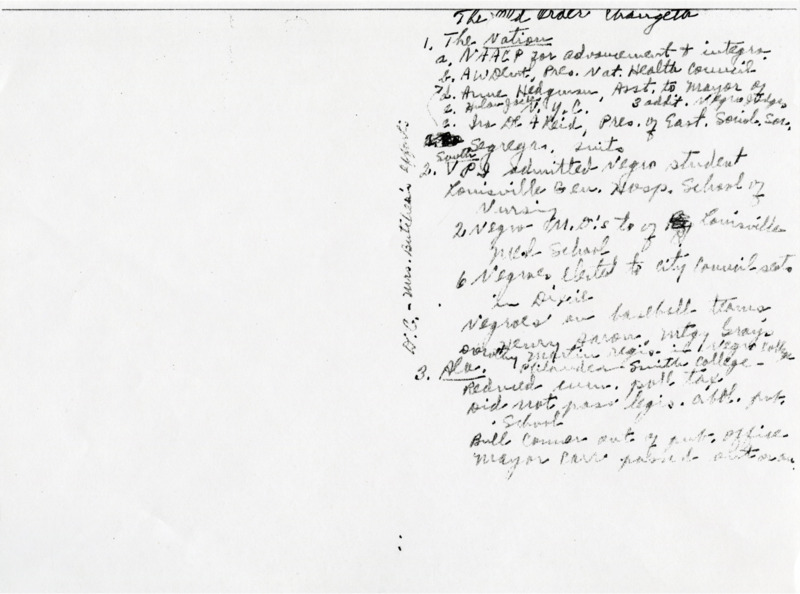 The Old Order Changeth
1. The Nation
a. NAACP for advancement + integra.
b. AW Dent, Pres. Nat. Health Council
d. Anna Hedgman, Asst. to Mayor of
N.Y.C. 3 addit. Negro Judges
Ira De A Reid, Pres. of East. Sociol. Soc.
Segregn. suits
South
2. VPI admitted Negro student
Louisville Gen. Hosp. School of
Nursing
2 Negro M.D.'s to of Louisville
Med School
6 Negroes elected to City Council seats
in Dixie
Negroes on baseball teams
Henry Aaron, Mtgy Grays
Dorothy Martin regis. in Negro College
Philander Smith College
3. Ala.
Reduced cum. poll tax
Did not pass legis. abol. pub.
School
Bull Conner out of pub. office
Mayor passed
D.C. - Mrs. Butcher's efforts